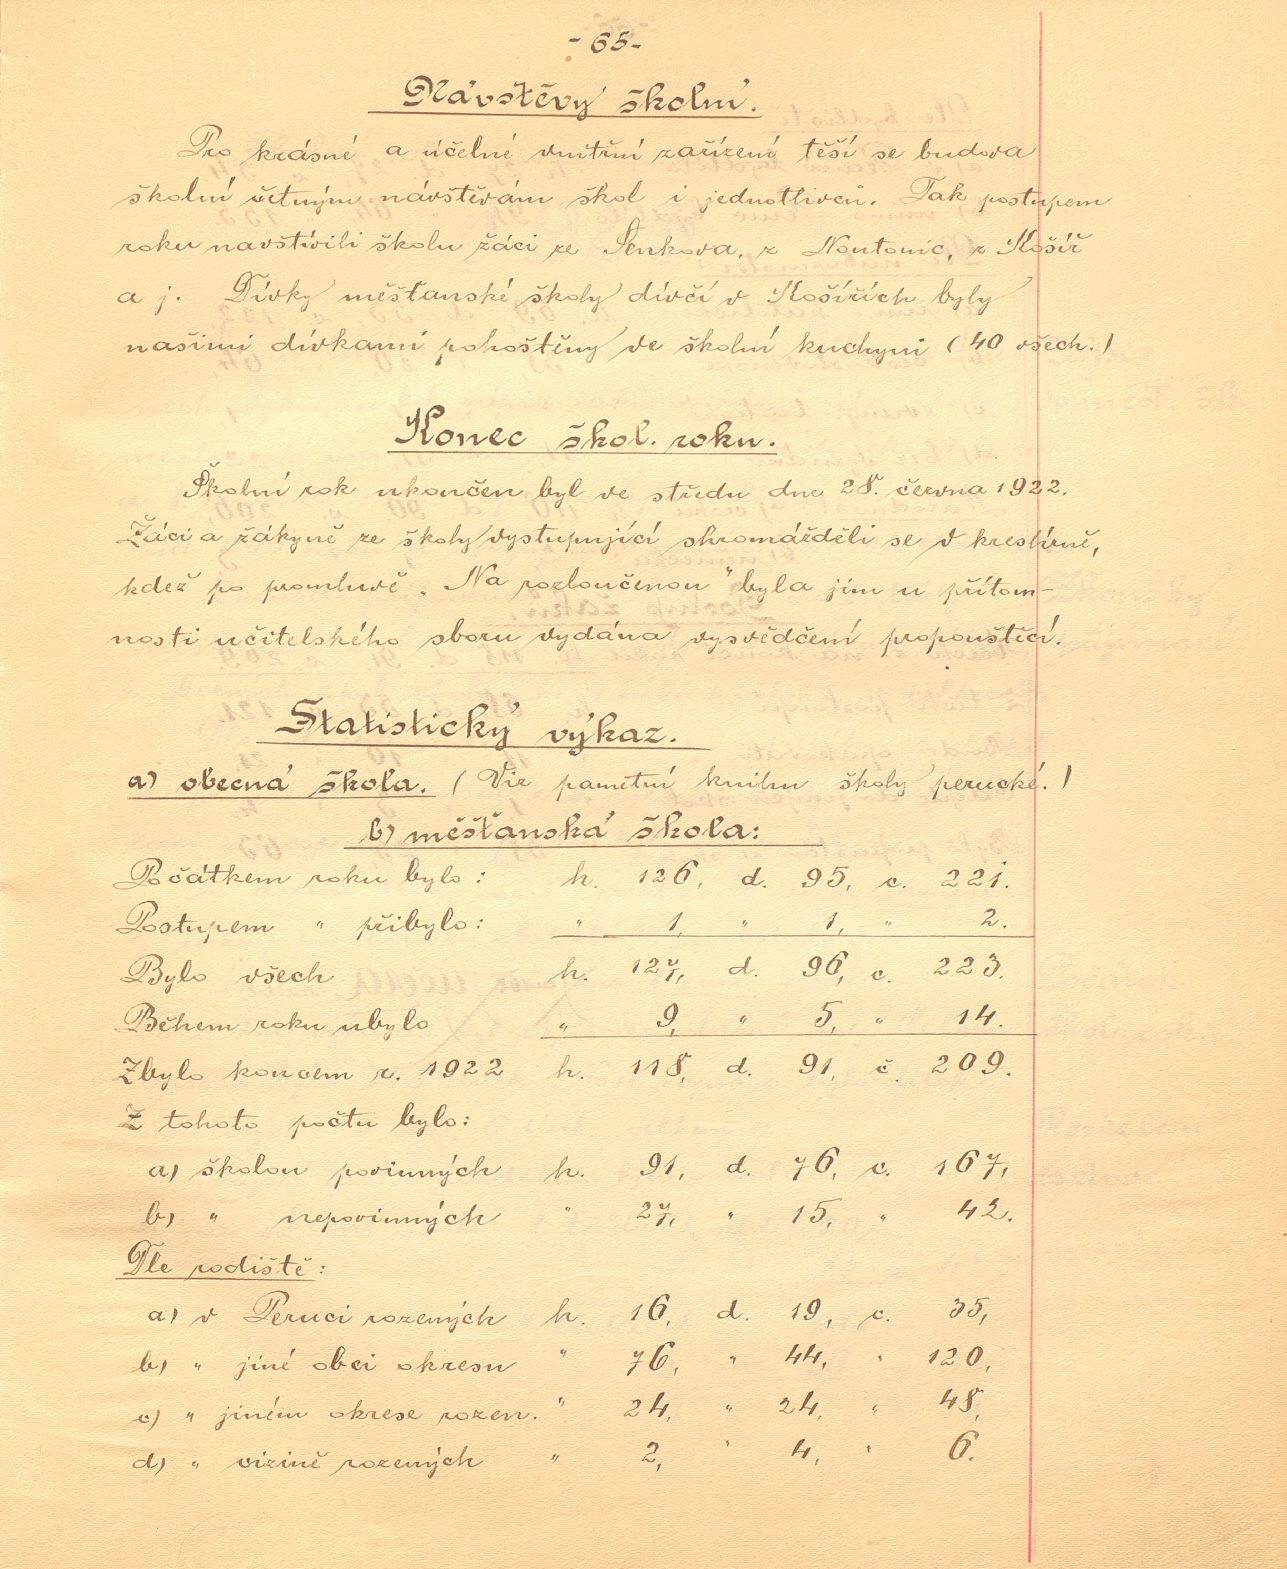 - 65 -
Návštěvy školní.
Pro krásné a účelné vnitřní zařízení těší se budova
školní četným návštěvám škol i jednotlivců. Tak postupem
roku navštívili školu žáci ze Šenkova, z Noutonic, z Košíř
a j. Dívky měšťanské školy dívčí v Košířích byly
našimi dívkami pohoštěny ve školní kuchyni (40 všech.)
Konec škol. roku.
Školní rok ukončen byl ve středu dne 28. června 1922.
Žáci a žákyně ze školy vystupující shromážděli se v kreslírně,
kdež po promluvě „Na rozloučenou" byla jim u přítom-
nosti učitelského sboru vydána vysvědčení propouštěcí.
Statistický výkaz.
a) obecná škola. (Viz pamětní knihu školy perucké.)
b) měšťanská škola:
Počátkem roku bylo: h. 126, d. 95, c. 221.
Postupem " přibylo: " 1, " 1, " 2.
Bylo všech h. 127, d. 96, c. 223.
Během roku ubylo " 9, " 5, " 14.
Zbylo koncem r. 1922 h. 118, d. 91, č. 209.
Z tohoto počtu bylo:
a) školou povinných h. 91, d. 76, c. 167,
b) " nepovinných " 27, " 15, " 42.
Dle rodiště:
a) v Peruci rozených h. 16, d. 19, c. 35,
b) " jiné obci okresu " 76, " 44, " 120,
c) " jiném okrese rozen. " 24, " 24, " 48,
d) " cizině rozených " 2, " 4, " 6.